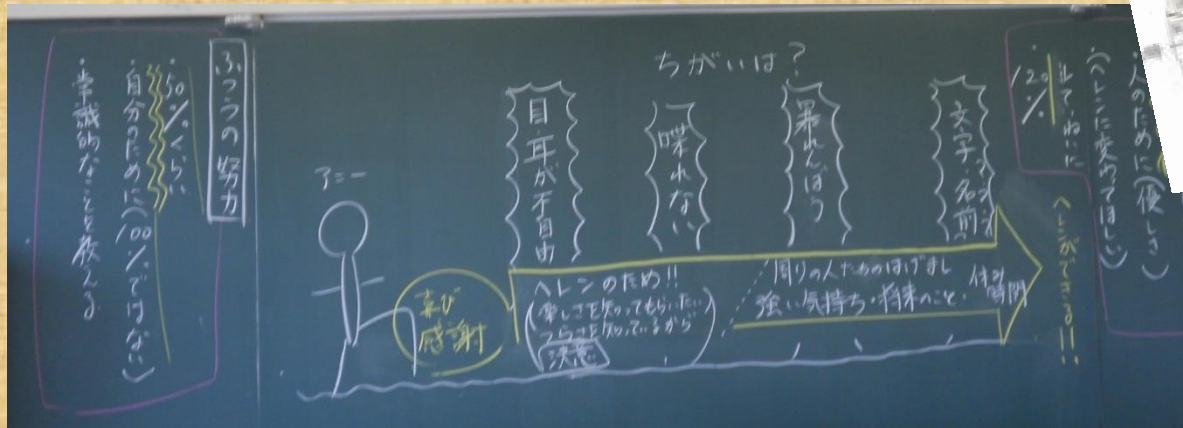 人のために(優しさ)
(ヘレンに変わってほしい)
120%
ちがいは?
文字・名前
暴れんぼう
喋れない
目・耳が不自由
アニー
喜び
感謝
ヘレンのため!!
楽しさを知ってもらいたい
つらさを知っているから
決意
周りの人たちのはげまし
強い気持ち・将来のこと・休み時間
ヘレンができる!!!
ふつうの努力
・50%くらい
・自分のために(100%ではない)
・常識的なことを教える